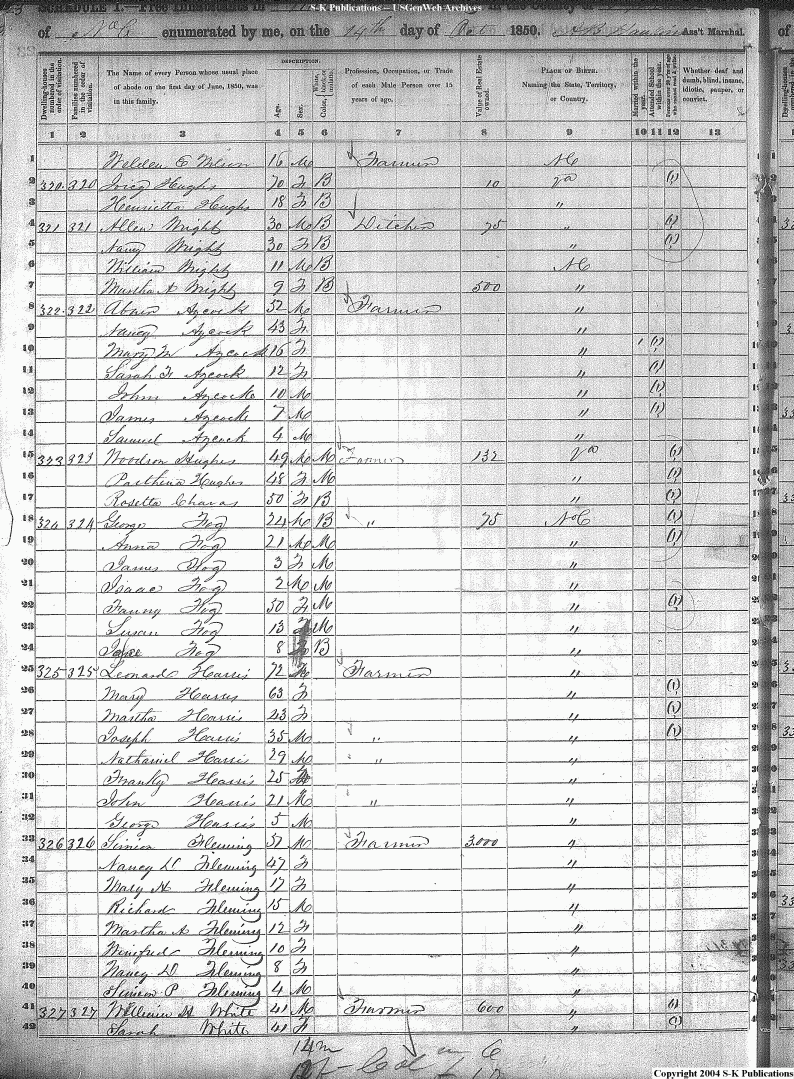 S-K Publications -- USGenWeb Archives
SCHEDULE I.—Free Inhabitants in in the County of
of N° C enumerated by me, on the 14th day of Octo 1850. Ass't Marshal.
Dwelling-houses numbered in the order of visitation.
Families numbered in the order of visitation.
The Name of every Person whose usual place of abode on the first day of June, 1850, was in this family.
DESCRIPTION.
Age.
Sex.
White, black, or mulatto.
Color,
Profession, Occupation, or Trade of each Male Person over 15 years of age.
Value of Real Estate owned.
PLACE OF BIRTH.
Naming the State, Territory, or Country.
Married within the year.
Attended School within the year.
Persons over 20 y'rs of age who cannot read & write.
Whether deaf and dumb, blind, insane, idiotic, pauper or convict.
1 2 3 4 5 6 7 8 9 10 11 12 13
1 Welden E Wilson 16 M Farmer NC
2 320 320 Hughs 70 F B 10 Va (1)
3 Henrietta Hughs 18 F B "
4 321 321 Allen Wright 30 M B Ditcher 75 " (1)
5 Nancy Wright 30 F B " (1)
6 William Wright 11 M B NC
7 Martha A Wright 9 F B 500 "
8 322 322 Abner Aycock 52 M Farmer "
9 Nancy Aycock 43 F "
10 Mary M Aycock 16 F " 1 (1)
11 Sarah F Aycock 12 F " (1)
12 John Aycock 10 M " (1)
13 James Aycock 7 M " (1)
14 Samuel Aycock 4 M "
15 323 323 Woodson Hughes 49 M M Farmer 132 Va (1)
16 Parthena Hughes 48 F M " (1)
17 Rosetta Chavas 50 F B " (1)
18 324 324 George Fog 24 M B " 75 N°C (1)
19 Anna Fog 21 M M " (1)
20 James Fog 3 F M "
21 Isaac Fog 2 M M "
22 Fanny Fog 30 F M " (1)
23 Susan Fog 13 F M "
24 Fog 8 F B "
25 325 325 Leonard Harris 72 M Farmer "
26 Mary Harris 63 F " (1)
27 Martha Harris 43 F " (1)
28 Joseph Harris 35 M " " (1)
29 Nathaniel Harris 29 M " "
30 Franky Harris 25 "
31 John Harris 21 M " "
32 George Harris 5 M "
33 326 326 Simion Fleming 57 M Farmer 3.000 "
34 Nancy Fleming 47 F "
35 Mary H Fleming 17 F "
36 Richard Fleming 15 M "
37 Martha A Fleming 12 F "
38 Winifred Fleming 10 F "
39 Nancy D Fleming 8 F "
40 Simion P Fleming 4 M "
41 327 327 William H White 41 M Farmer 600 " (1)
42 Sarah White 41 F " (1)
14 m
Copyright 2004 S-K Publications